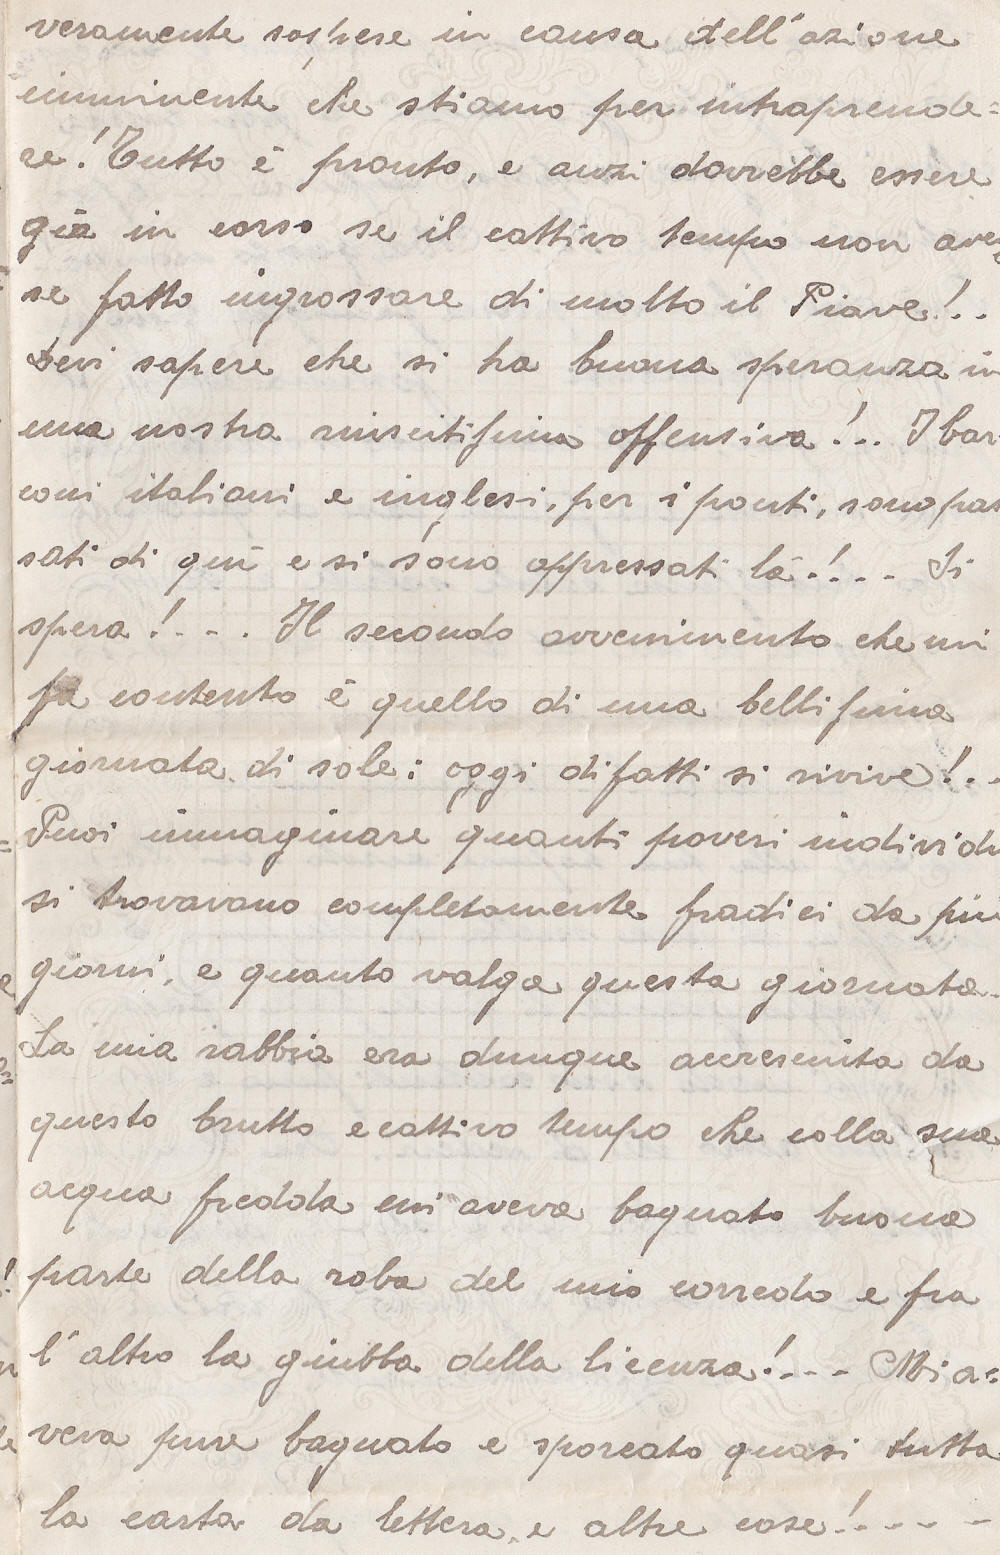 veramente sospese in causa dell'azione
imminente che stiamo per intraprende=
re! Tutto è pronto, e anzi dovrebbe essere
già in corso se il cattivo tempo non aves
se fatto ingrossare di molto il Piave!..
Devi sapere che si ha buona speranza in
una nostra riuscitissima offensiva!.. I bar
coni italiani e inglesi, per i ponti, sono pas
sati di quì e si sono appressati là!... Si
spera!... Il secondo avvenimento che mi
fa contento è quello di una bellissima
giornata di sole: oggi difatti si rivive!..
Puoi immaginare quanti poveri individu
si trovavano completamente fradici da piu
giorni, e quanto valga questa giornata.
La mia rabbia era dunque accresciuta da
questo brutto e cattivo tempo che colla sua
acqua fredda mi aveva bagnato buona
parte della roba del mio corredo e fra
l'altro la giubba della licenza!.... Mi a=
veva pure bagnato e sporcato quasi tutta
la carta da lettera, e altre cose!.....